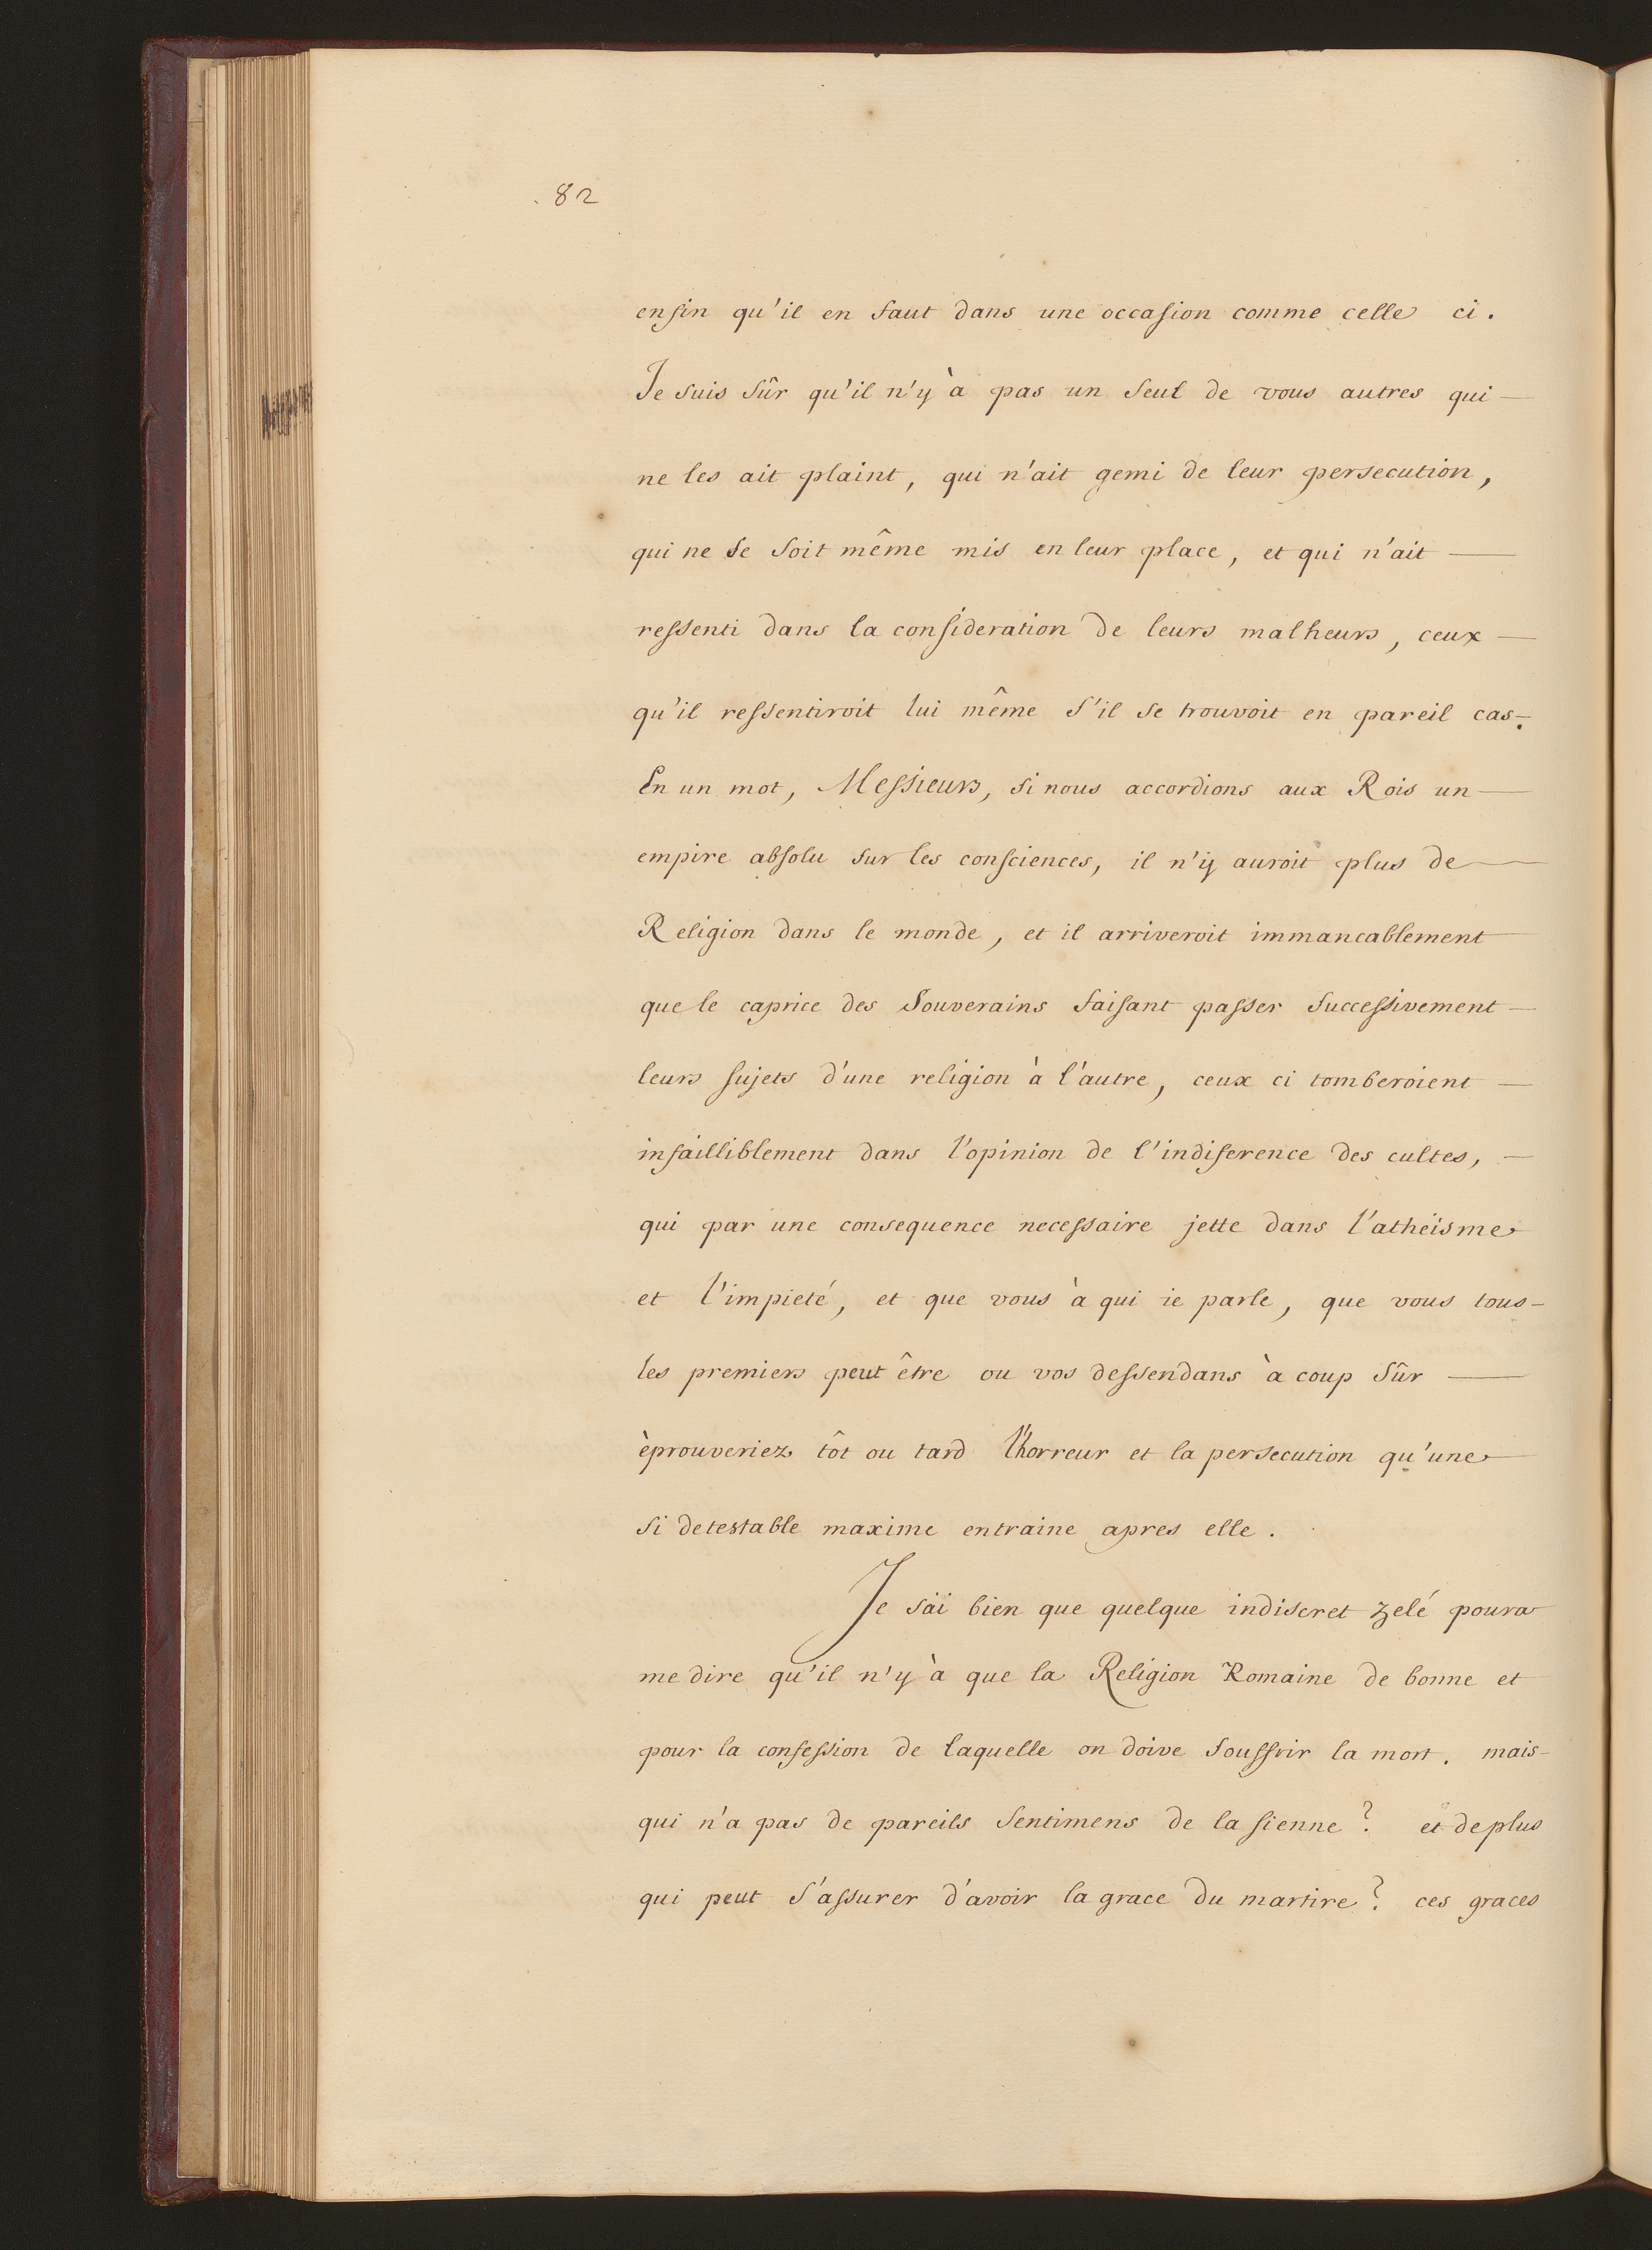 . 82
enfin qu'il en faut dans une occasion comme celle ci.
Je suis sûr qu'il n'y à pas un seul de vous autres qui —
ne les ait plaint, qui n'ait gemi de leur persecution,
qui ne se soit même mis en leur place, et qui n'ait —
ressenti dans la consideration de leurs malheurs, ceux —
qu'il ressentiroit lui même s'il se trouvoit en pareil cas.
En un mot, Messieurs, si nous accordions aux Rois un —
empire absolu sur les consciences, il n'ÿ auroit plus de —
Religion dans le monde, et il arriveroit immancablement
que le caprice des Souverains faisant passer successivement —
leurs sujets d'une religion à l'autre, ceux ci tomberoient —
infailliblement dans l'opinion de l'indiference des cultes, —
qui par une consequence necessaire jette dans l'atheïsme
et l'impieté, et que vous à qui ie parle, que vous tous —
les premiers peut être ou vos dessendans à coup sûr —
èprouveriez tôt ou tard l'horreur et la persecution qu'une —
si detestable maxime entraine apres elle.
Je säi bien que quelque indiscret zelé poura
me dire qu'il n'y à que la Religion Romaine de bonne et
pour la confession de laquelle on doive souffrir la mort. mais —
qui n'a pas de pareils sentimens de la sienne? et de plus
qui peut s'assurer d'avoir la grace du martire? ces graces